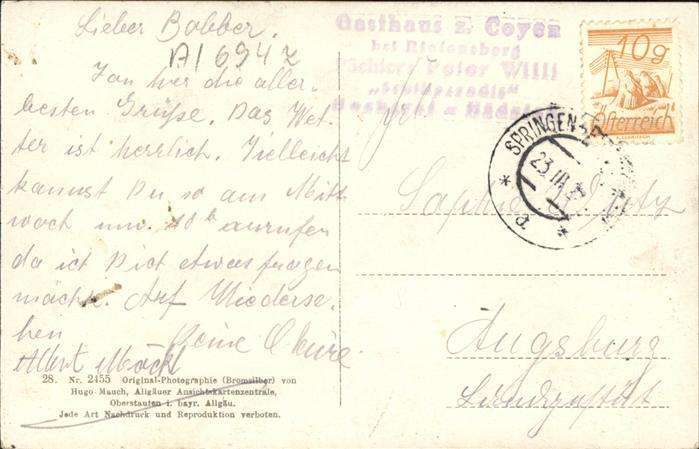 Lieber Bobber.
A1 694 Z
Von hier die aller-
besten Grüße. Das Wet-
ter ist herrlich. Vielleicht
kannst Du so am Mitt
woch um 10 h anrufen
da ich Dich etwas fragen
möchte. Auf Wiederse-
hen Deine
Albert
28. Nr. 2455 Original-Photographie (Bromsilber) von
Hugo Mauch, Allgäuer Ansichtskartenzentrale,
Oberstaufen i. bayr. Allgäu.
Jede Art Nachdruck und Reproduktion verboten.
Gasthaus z. Goyen
bei
Pächter: Peter Willi
10g
Österreich
SPRINGEN
23.III
a
Augsburg